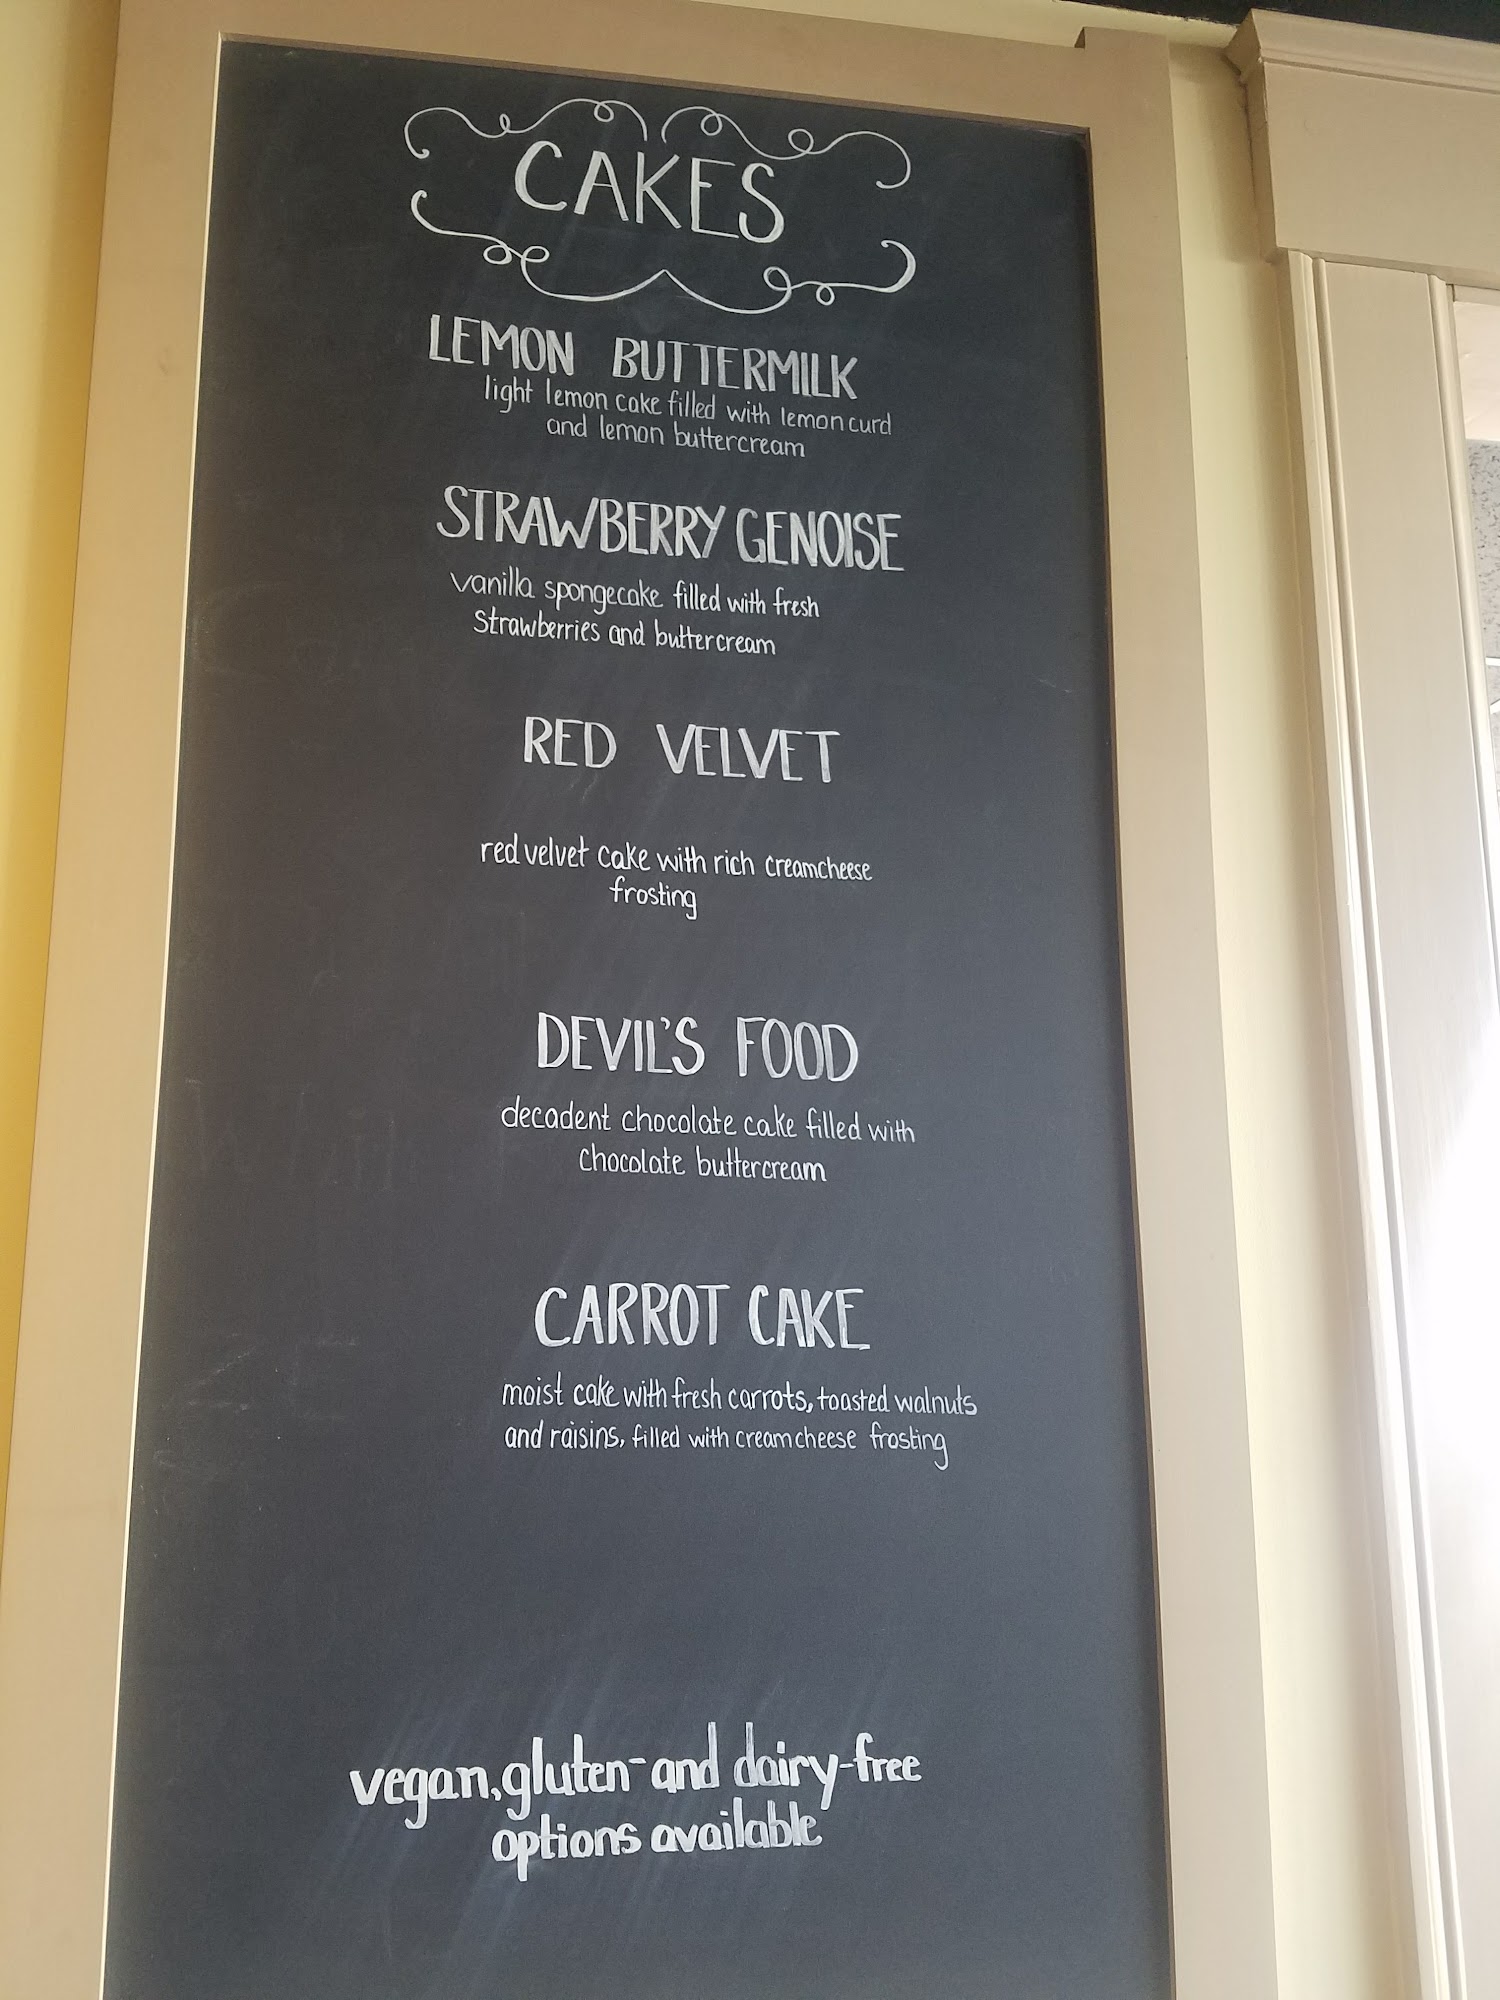 CAKES
LEMON BUTTERMILK
light lemon cake filled with lemon curd
and lemon buttercream
STRAWBERRY GENOISE
vanilla spongecake filled with fresh
Strawberries and buttercream
RED VELVET
red velvet cake with rich creamcheese
frosting
DEVIL'S FOOD
decadent chocolate cake filled with
chocolate buttercream
CARROT CAKE
moist cake with fresh carrots, toasted walnuts
and raisins, filled with creamcheese frosting
vegan, gluten- and dairy-free
options available